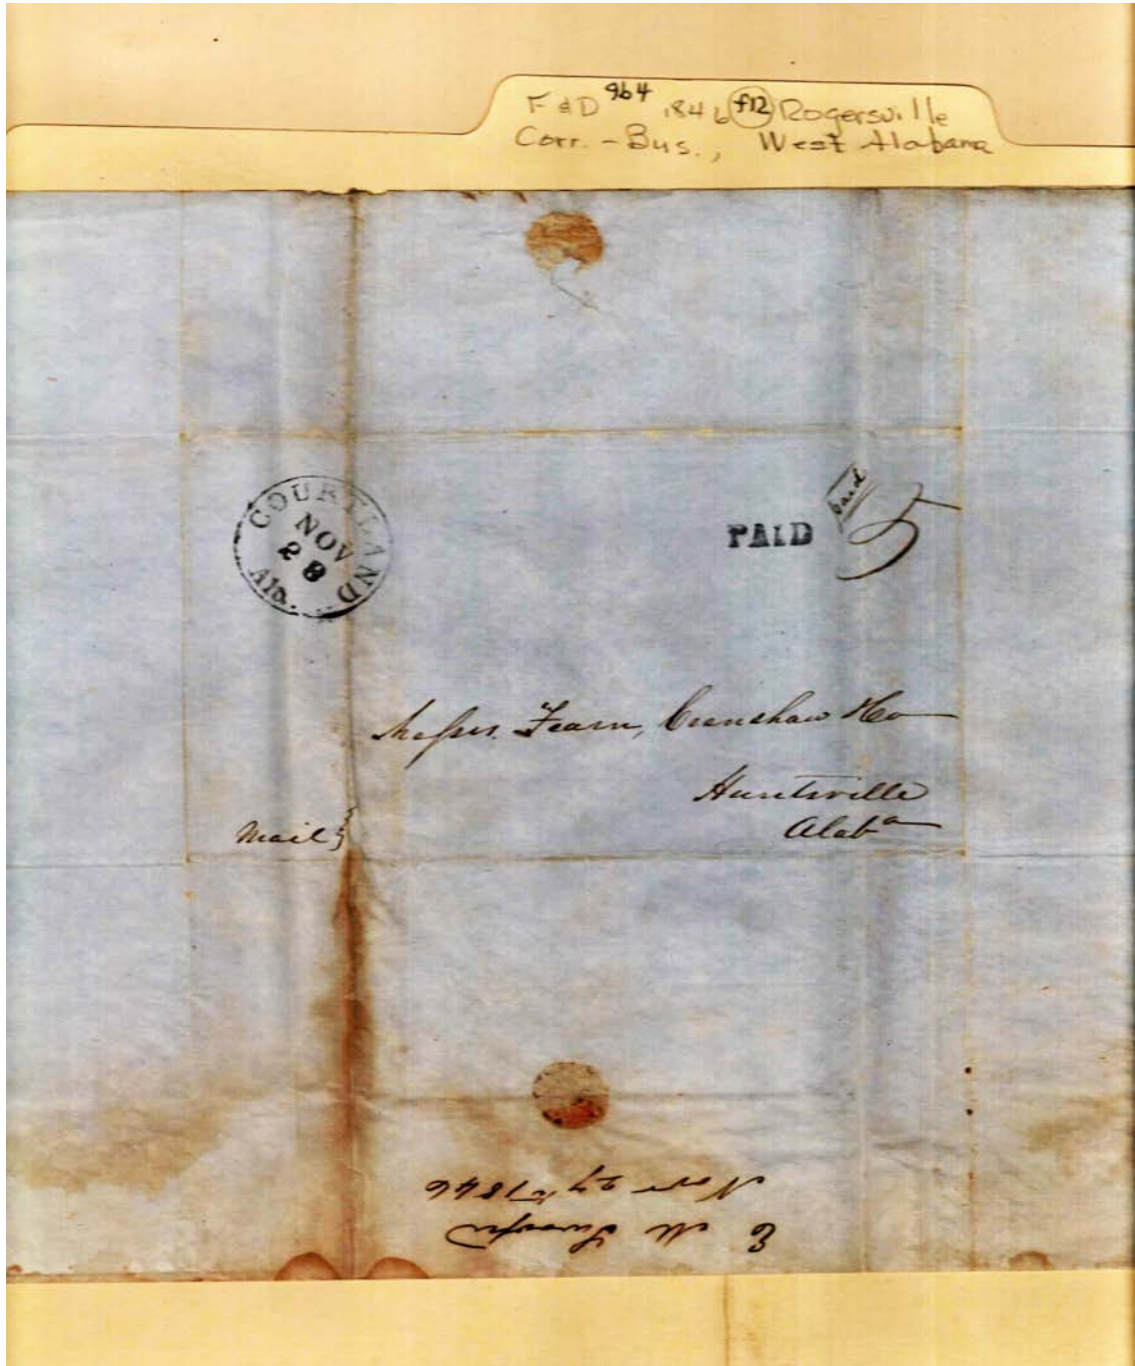 F & D 9b4 1846 f12 Rogersville
Corr. - Bus., West Alabama
COURTLAND
NOV
28
Ala.
PAID
Paid
5
Messrs. Fearn, Crenshaw & Co
Huntsville
Alab^a
Mail
E M
Nov 27th 1846